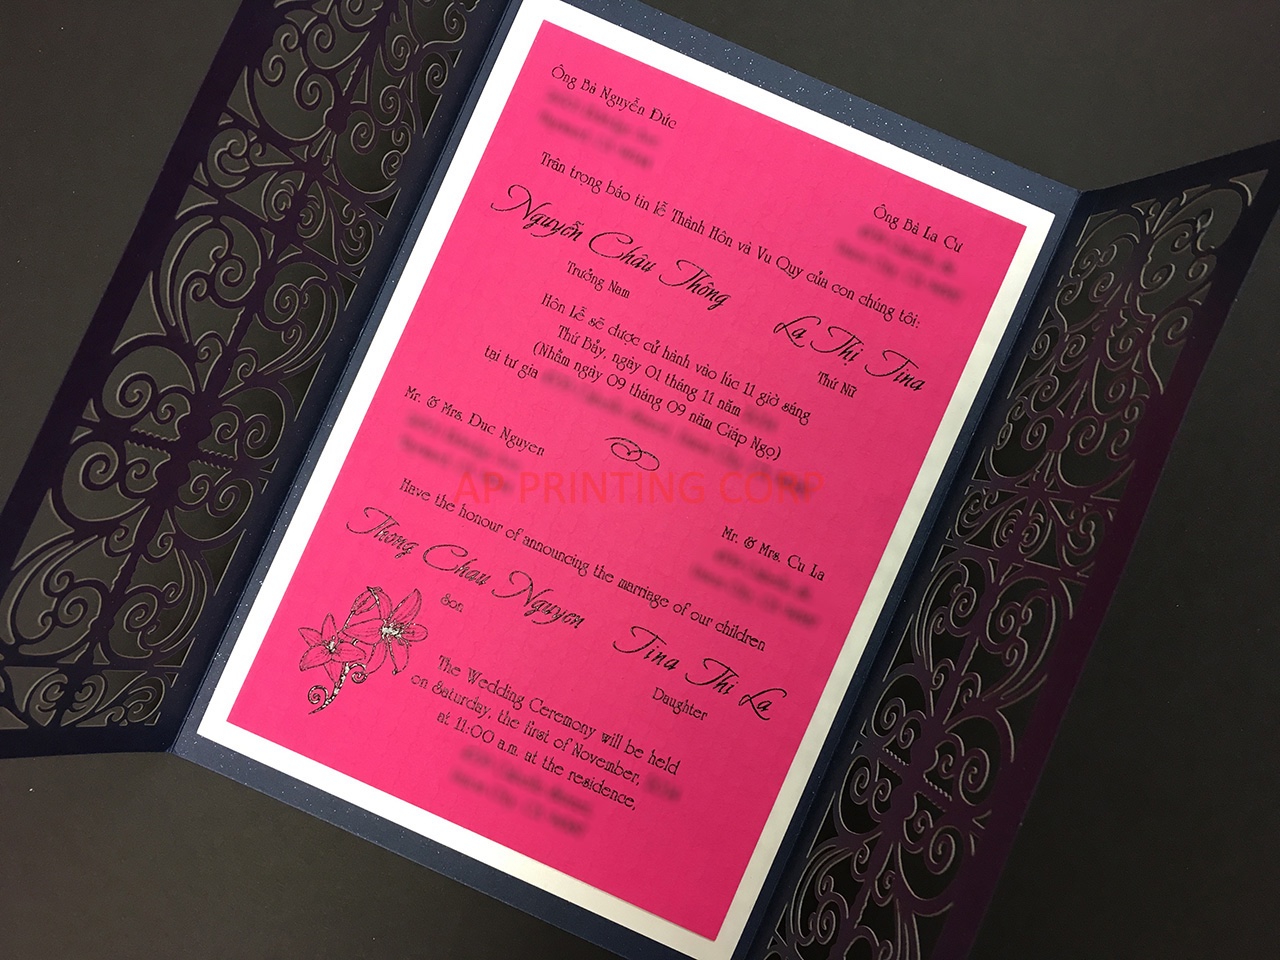 Ông Bà Nguyễn Đức
Ông Bà La Cư
Trân trọng báo tin lễ Thành Hôn và Vu Quy của con chúng tôi:
Nguyễn Châu Thông
Trưởng Nam
La Thị Tina
Thứ Nữ
Hôn lễ sẽ được cử hành vào lúc 11 giờ sáng
Thứ Bảy, ngày 01 tháng 11 năm
(Nhằm ngày 09 tháng 09 năm Giáp Ngọ)
tại tư gia
Mr. & Mrs. Duc Nguyen
Mr. & Mrs. Cu La
AP PRINTING CORP
Have the honour of announcing the marriage of our children
Thong Chau Nguyen
Son
Tina Thi La
Daughter
The Wedding Ceremony will be held
on Saturday, the first of November,
at 11:00 a.m. at the residence,